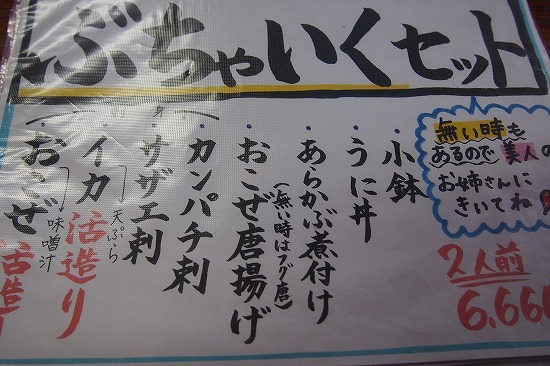 ぶちゃいくセット
無い時も
あるので美人の
お姉さんに
きいてね
2人前
6,666
・小鉢
・うに丼
・あらかぶ煮付け
・おこぜ唐揚げ
(無い時はフグ唐)
・カンパチ刺
・サザエ刺
・イカ活造り
天ぷら
・おこぜ活造り
味噌汁